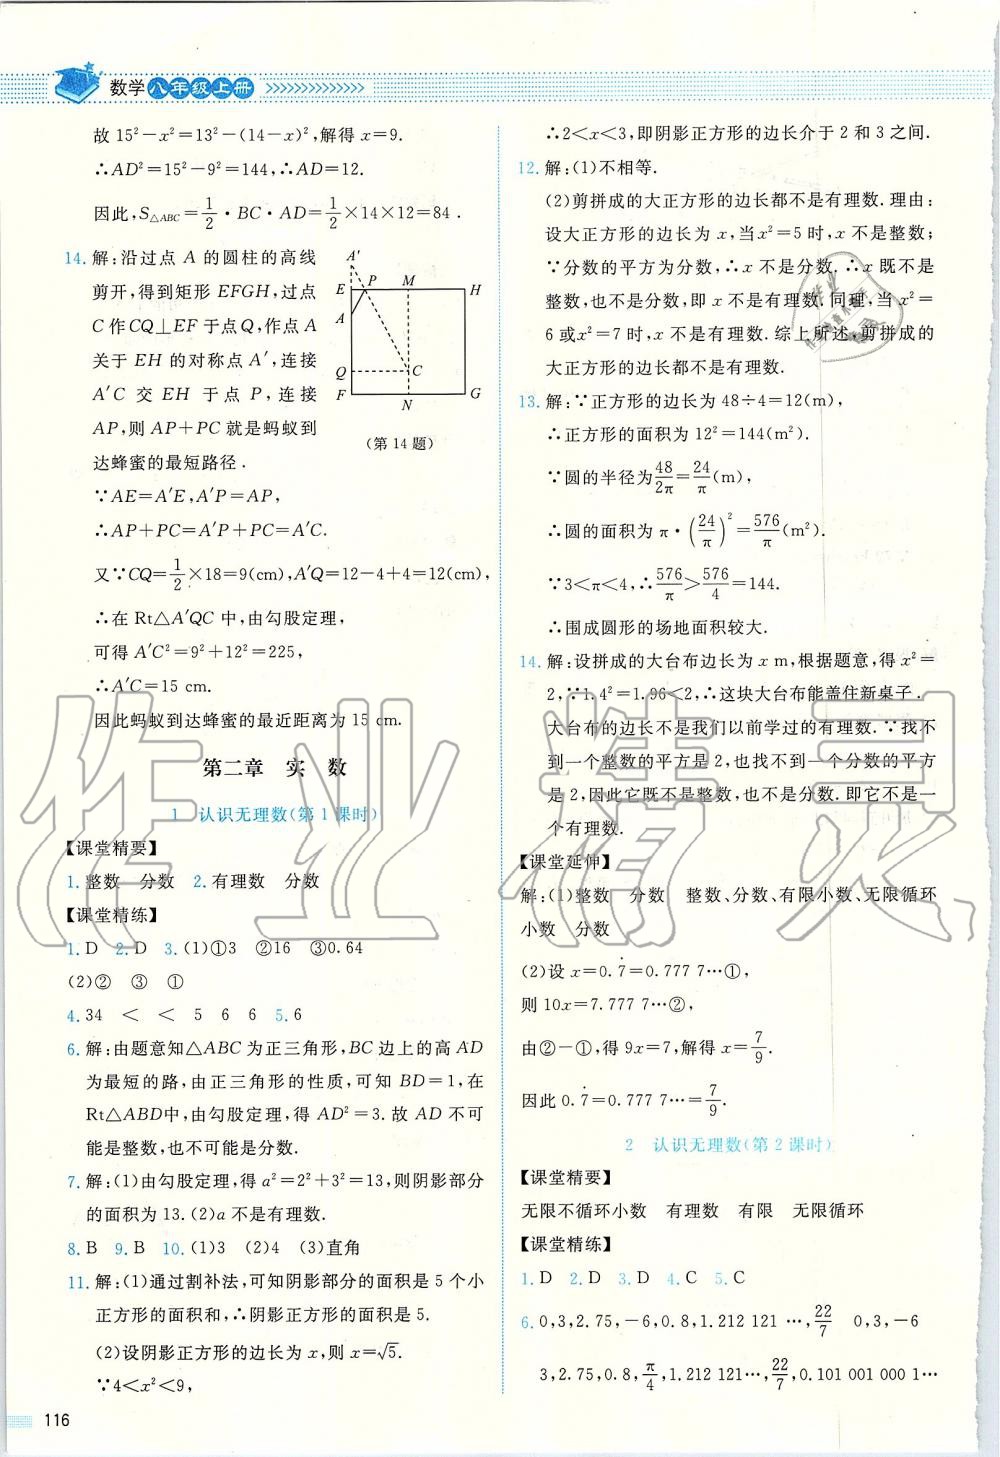 数学八年级上册
故 15²－x²＝13²－(14－x)²,解得 x＝9.
∴AD²＝15²－9²＝144,∴AD＝12.
因此,S△ABC＝1/2·BC·AD＝1/2×14×12＝84.
14.解:沿过点 A 的圆柱的高线
剪开,得到矩形 EFGH,过点
C 作 CQ⊥EF 于点 Q,作点 A
关于 EH 的对称点 A′,连接
A′C 交 EH 于点 P,连接
AP,则 AP＋PC 就是蚂蚁到
达蜂蜜的最短路径.
A′
E P M H
A
Q C
F N G
(第 14 题)
∵AE＝A′E,A′P＝AP,
∴AP＋PC＝A′P＋PC＝A′C.
又∵CQ＝1/2×18＝9(cm),A′Q＝12－4＋4＝12(cm),
∴在 Rt△A′QC 中,由勾股定理,
可得 A′C²＝9²＋12²＝225,
∴A′C＝15 cm.
因此蚂蚁到达蜂蜜的最近距离为 15 cm.
第二章 实 数
1 认识无理数(第 1 课时)
【课堂精要】
1.整数 分数 2.有理数 分数
【课堂精练】
1.D 2.D 3.(1)①3 ②16 ③0.64
(2)② ③ ①
4.34 ＜ ＜ 5 6 6 5.6
6.解:由题意知△ABC 为正三角形,BC 边上的高 AD
为最短的路,由正三角形的性质,可知 BD＝1,在
Rt△ABD中,由勾股定理,得 AD²＝3.故 AD 不可
能是整数,也不可能是分数.
7.解:(1)由勾股定理,得 a²＝2²＋3²＝13,则阴影部分
的面积为 13.(2)a 不是有理数.
8.B 9.B 10.(1)3 (2)4 (3)直角
11.解:(1)通过割补法,可知阴影部分的面积是 5 个小
正方形的面积和,∴阴影正方形的面积是 5.
(2)设阴影正方形的边长为 x,则 x＝√5.
∵4＜x²＜9,
116
∴2＜x＜3,即阴影正方形的边长介于 2 和 3 之间.
12.解:(1)不相等.
(2)剪拼成的大正方形的边长都不是有理数.理由:
设大正方形的边长为 x,当x²＝5 时,x 不是整数;
∵分数的平方为分数,∴x 不是分数.∴x 既不是
整数,也不是分数,即 x 不是有理数.同理,当 x²＝
6 或x²＝7 时,x 不是有理数.综上所述,剪拼成的
大正方形的边长都不是有理数.
13.解:∵正方形的边长为 48÷4＝12(m),
∴正方形的面积为 12²＝144(m²).
∵圆的半径为48/2π＝24/π(m),
∴圆的面积为 π·(24/π)²＝576/π(m²).
∵3＜π＜4,∴576/π＞576/4＝144.
∴围成圆形的场地面积较大.
14.解:设拼成的大台布边长为 x m,根据题意,得 x²＝
2,∵1.4²＝1.96＜2,∴这块大台布能盖住新桌子.
大台布的边长不是我们以前学过的有理数.∵找不
到一个整数的平方是 2,也找不到一个分数的平方
是 2,因此它既不是整数,也不是分数.即它不是一
个有理数.
【课堂延伸】
解:(1)整数 分数 整数、分数、有限小数、无限循环
小数 分数
(2)设 x＝0.7̇＝0.777 7…①,
则 10x＝7.777 7…②,
由②－①,得 9x＝7,解得 x＝7/9.
因此 0.7̇＝0.777 7…＝7/9.
2 认识无理数(第 2 课时)
【课堂精要】
无限不循环小数 有理数 有限 无限循环
【课堂精练】
1.D 2.D 3.D 4.C 5.C
6.0,3,2.75,－6,0.8,1.212 121 …,22/7 0,3,－6
3,2.75,0.8,π/4,1.212 121…,22/7,0.101 001 000 1…
作业精灵